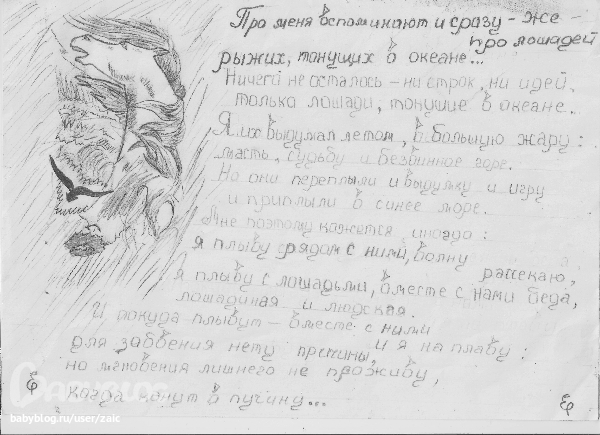 Про меня вспоминают и сразу - же -
про лошадей
рыжих, тонущих в океане...
Ничего не осталось - ни строк, ни идей,
только лошади, тонущие в океане...
Я их выдумал летом, в большую жару:
масть, судьбу и безвинное горе.
Но они переплыли и выдумку и игру
и приплыли в синее море.
Мне поэтому кажется иногда:
я плыву рядом с ними, волну
рассекаю,
я плыву с лошадьми, вместе с нами беда,
лошадиная и людская.
И покуда плывут - вместе с ними
и я на плаву:
для забвения нету причины,
но мгновения лишнего не проживу,
когда канут в пучину...
BABYBLOG
babyblog.ru/user/zaic